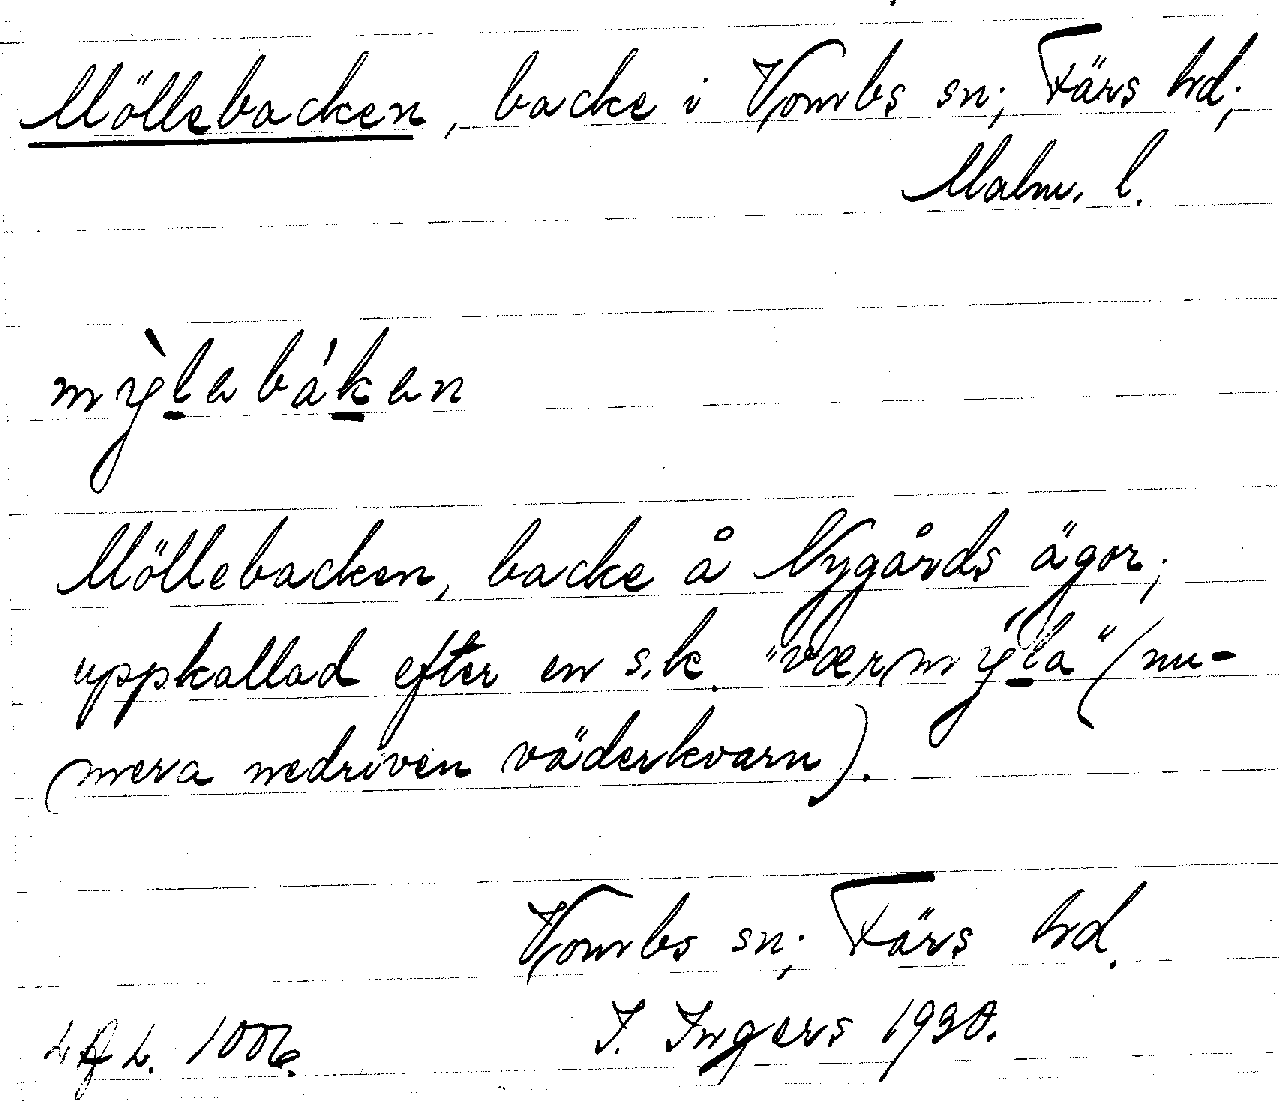 Möllebacken, backe i Vombs sn; Färs hd;
Malm. l.
mỳlebáken
Möllebacken, backe å Nygårds ägor;
uppkallad efter en s.k. "værmÿla" (nu-
mera nedriven väderkvarn).
Vombs sn; Färs hd.
I. Ingers 1930.
1006.